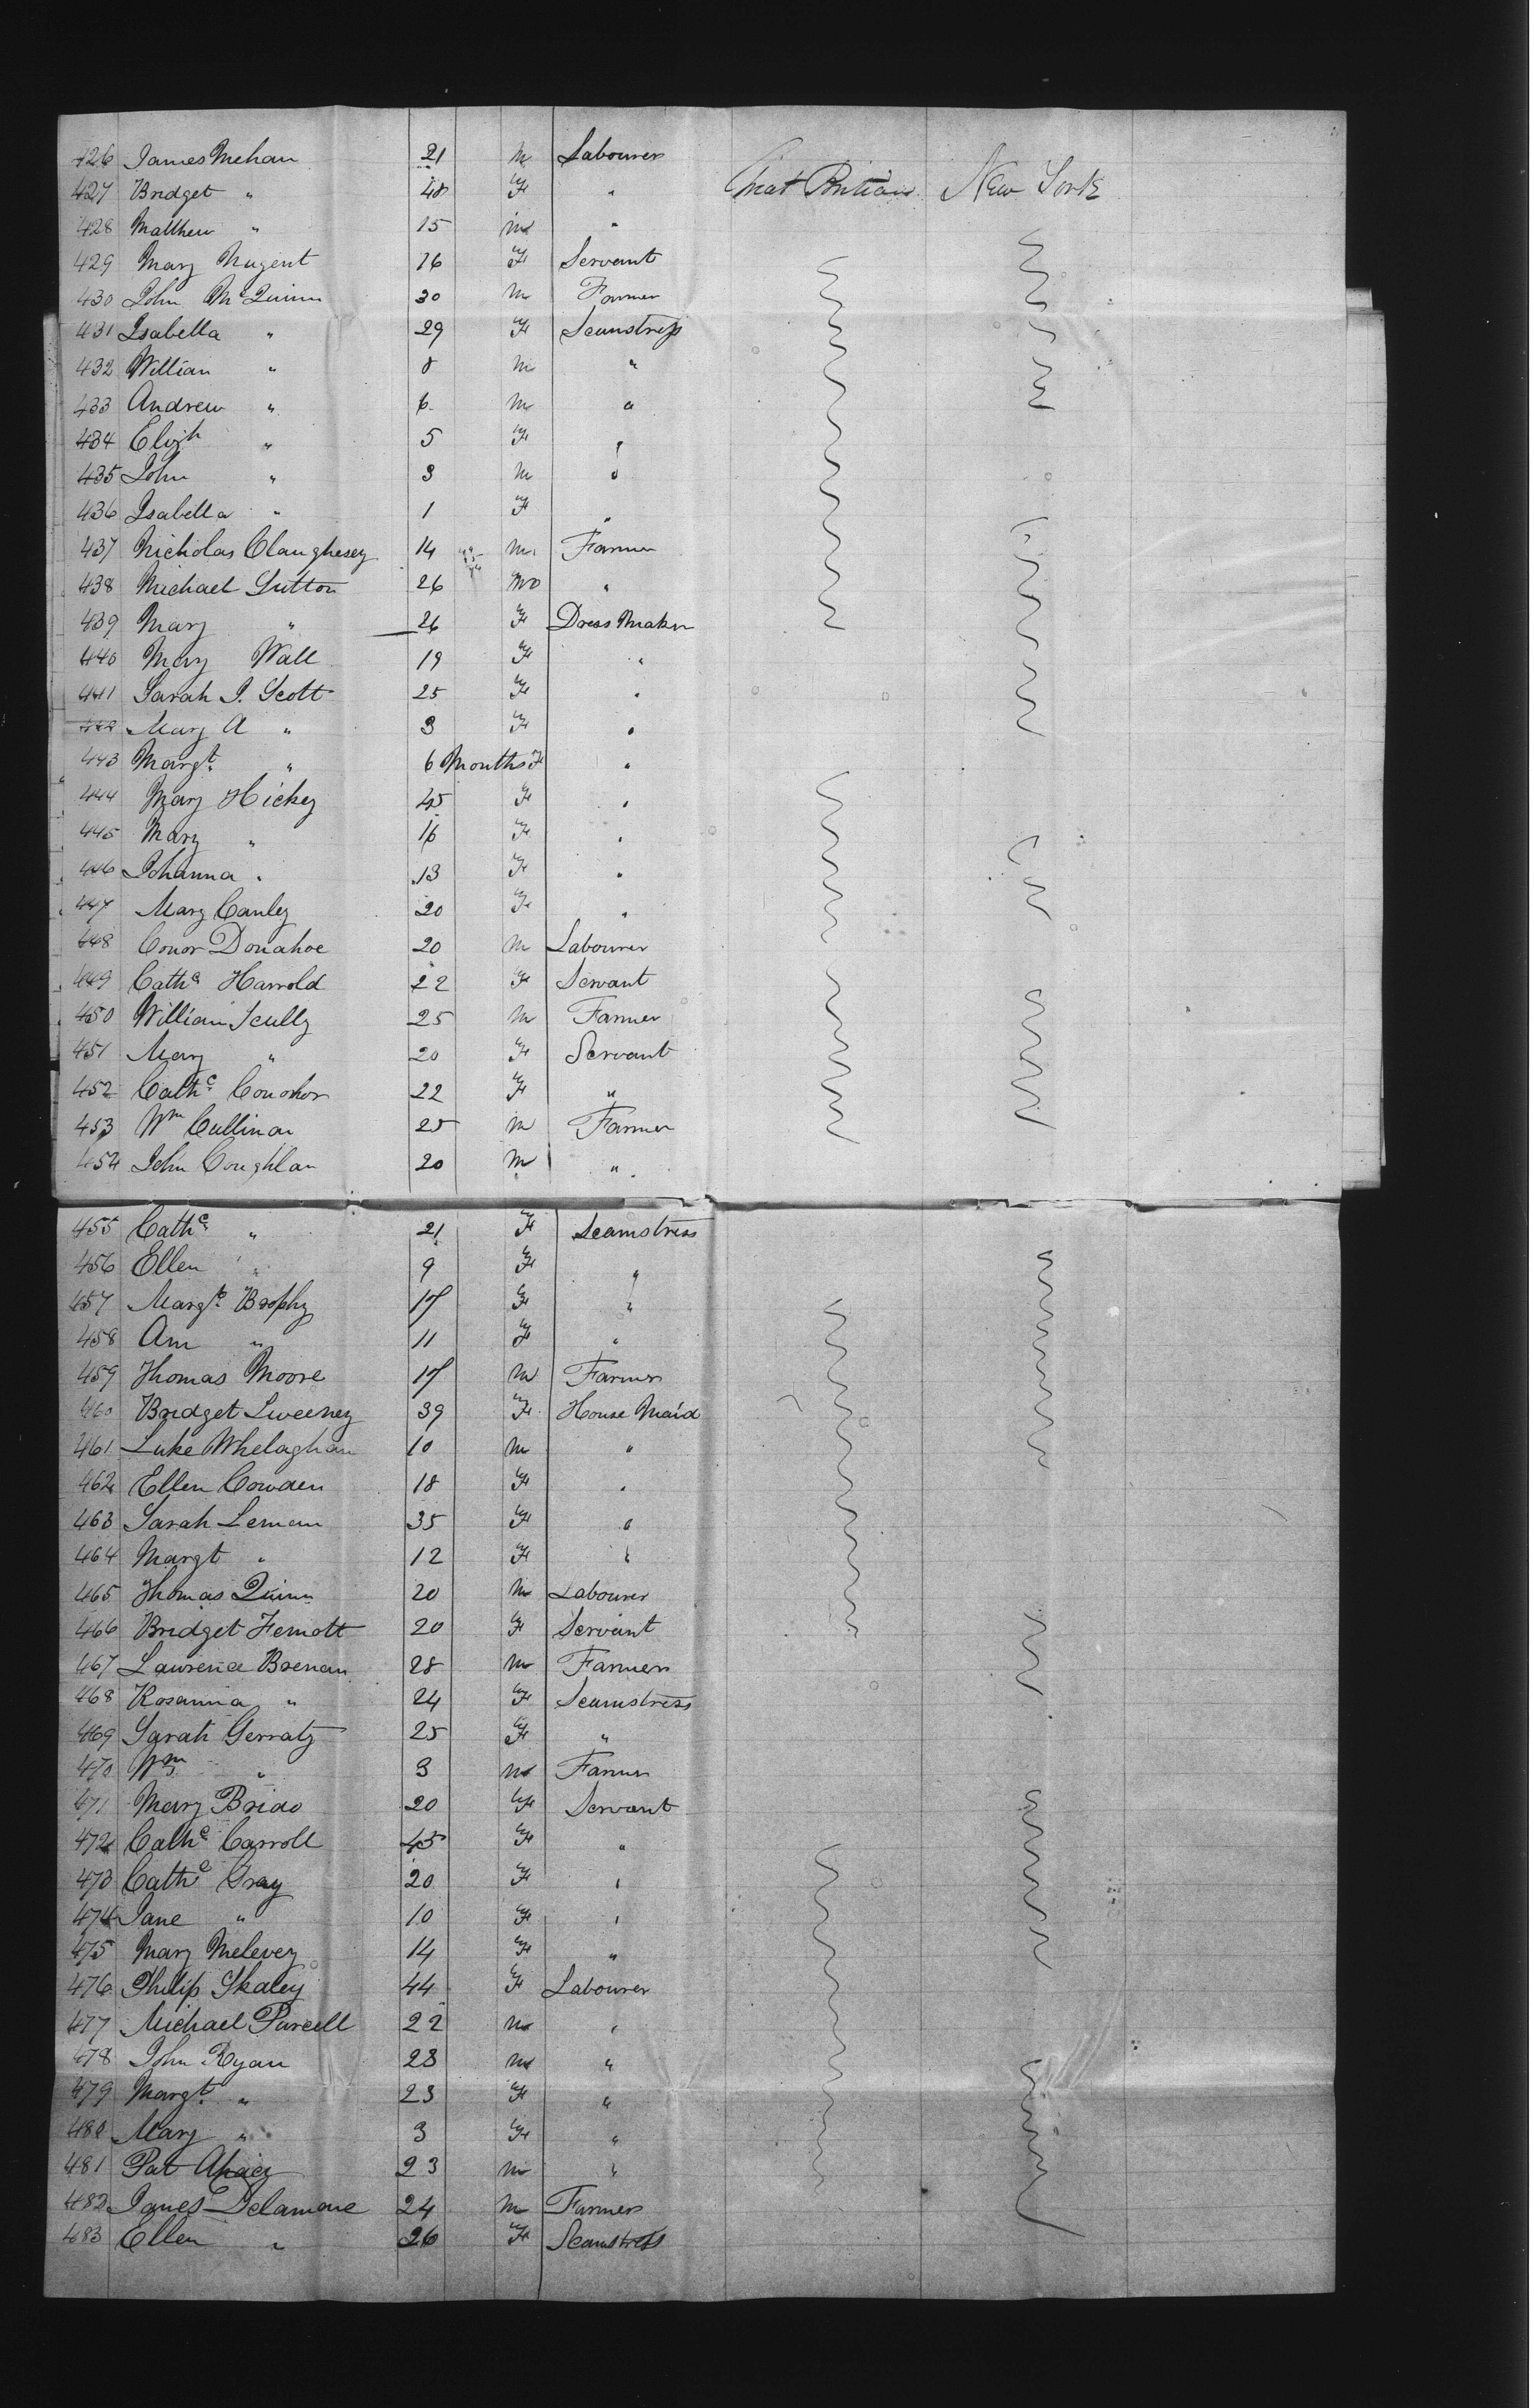 426 James Mehan 21 m Labourer
427 Bridget " 48 F " Great Britain New York
428 Matthew " 15 m "
429 Mary Nugent 16 F Servant
430 John McQuinn 30 m Farmer
431 Isabella " 29 F Seamstress
432 William " 8 m "
433 Andrew " 6 m "
434 Elizh " 5 F "
435 John " 3 m "
436 Isabella " 1 F "
437 Nicholas Claughesey 14 m Farmer
438 Michael Sutton 26 m "
439 Mary " 26 F Dress Maker
440 Mary Wall 19 F "
441 Sarah J. Scott 25 F "
442 Mary A " 3 F "
443 Margt. " 6 Months F "
444 Mary Hickey 45 F "
445 Mary " 16 F "
446 Johanna " 13 F "
447 Mary Canley 20 F "
448 Conor Donahoe 20 m Labourer
449 Cathe Harrold 22 F Servant
450 William Scully 25 m Farmer
451 Mary " 20 F Servant
452 Cathe Conohor 22 F "
453 Wm Cullinan 25 m Farmer
454 John Coughlan 20 m "
455 Cathe " 21 F Seamstress
456 Ellen " 9 F "
457 Margt. Brophy 17 F "
458 Ann " 11 F "
459 Thomas Moore 17 m Farmer
460 Bridget Sweeney 39 F House Maid
461 Luke Whelaghan 10 m "
462 Ellen Cowden 18 F "
463 Sarah Leman 35 F "
464 Margt " 12 F "
465 Thomas Quinn 20 m Labourer
466 Bridget Fernott 20 F Servant
467 Lawrence Brenan 28 m Farmer
468 Rosanna " 24 F Seamstress
469 Sarah Gerraty 25 F "
470 Wm " 3 m Farmer
471 Mary Brido 20 F Servant
472 Cathe Carroll 45 F "
473 Cathe Gray 20 F "
474 Jane " 10 F "
475 Mary Melevey 14 F "
476 Philip Skaley 44 F Labourer
477 Michael Purcell 22 m "
478 John Ryan 23 m "
479 Margt. " 23 F "
480 Mary " 3 F "
481 Pat 23 m "
482 James Delamore 24 m Farmer
483 Ellen " 26 F Seamstress